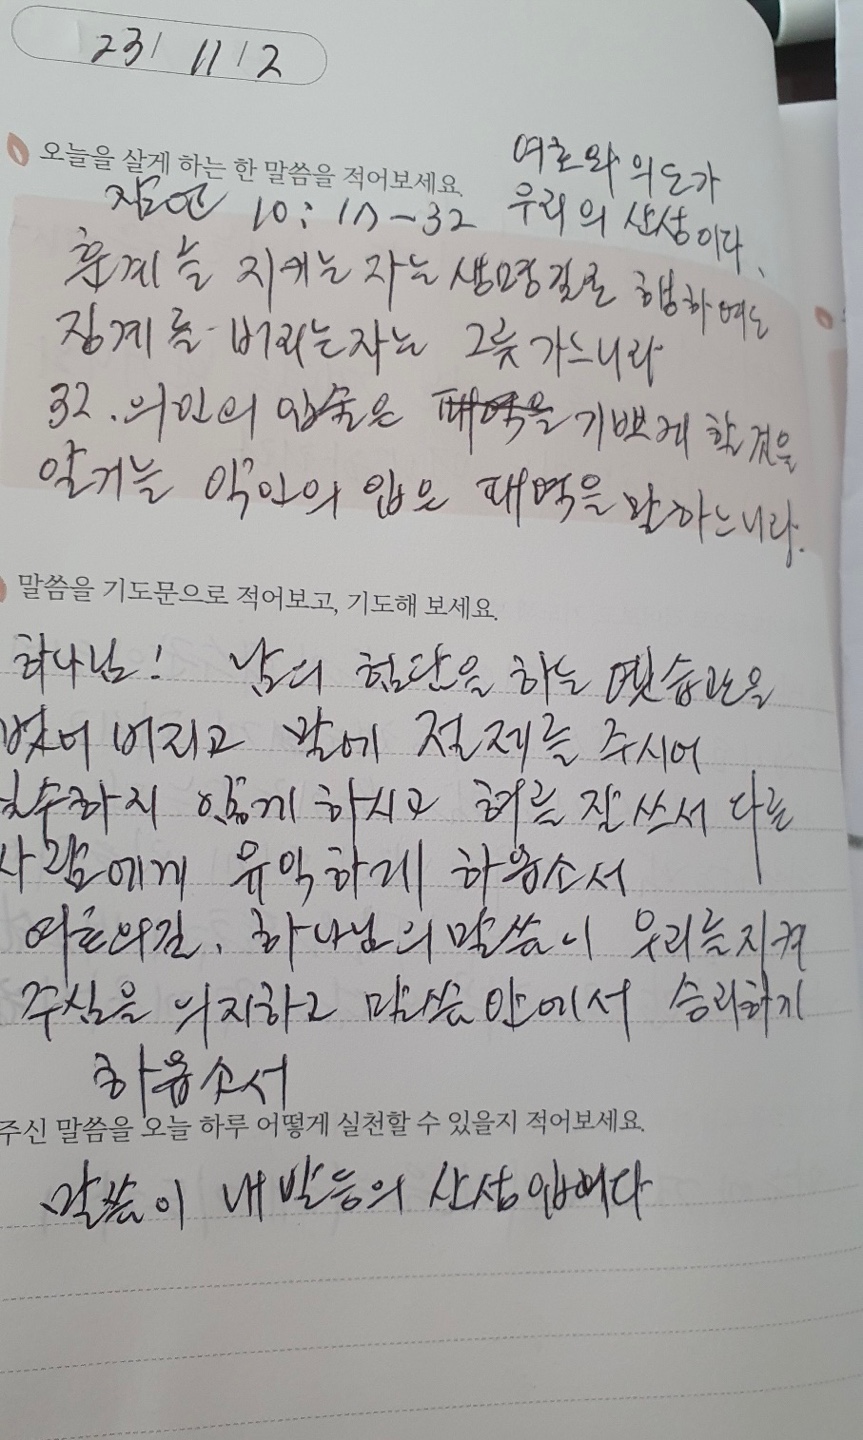 23/ 11/2
오늘을 살게 하는 한 말씀을 적어보세요.
여호와 의 도가
우리의 산성이다.
잠언 10:17-32
훈계를 지키는 자는 생명길로 행하여도
징계를 버리는자는 그릇 가느니라
32. 의인의 입술은 기쁘게 할 것을
알거늘 악인의 입은 패역을 말하느니라.
말씀을 기도문으로 적어보고, 기도해 보세요.
하나님! 남의 험단을 하는 옛습관을
벗어 버리고 말에 절제를 주시어
실수하지 않게 하시고 혀를 잘쓰서 다른
사람에게 유익하게 하옵소서
여호와의길, 하나님의 말씀이 우리를지켜
주심을 의지하고 말씀안에서 승리하기
하옵소서
주신 말씀을 오늘 하루 어떻게 실천할 수 있을지 적어보세요.
말씀이 내 발등의 산성입니다